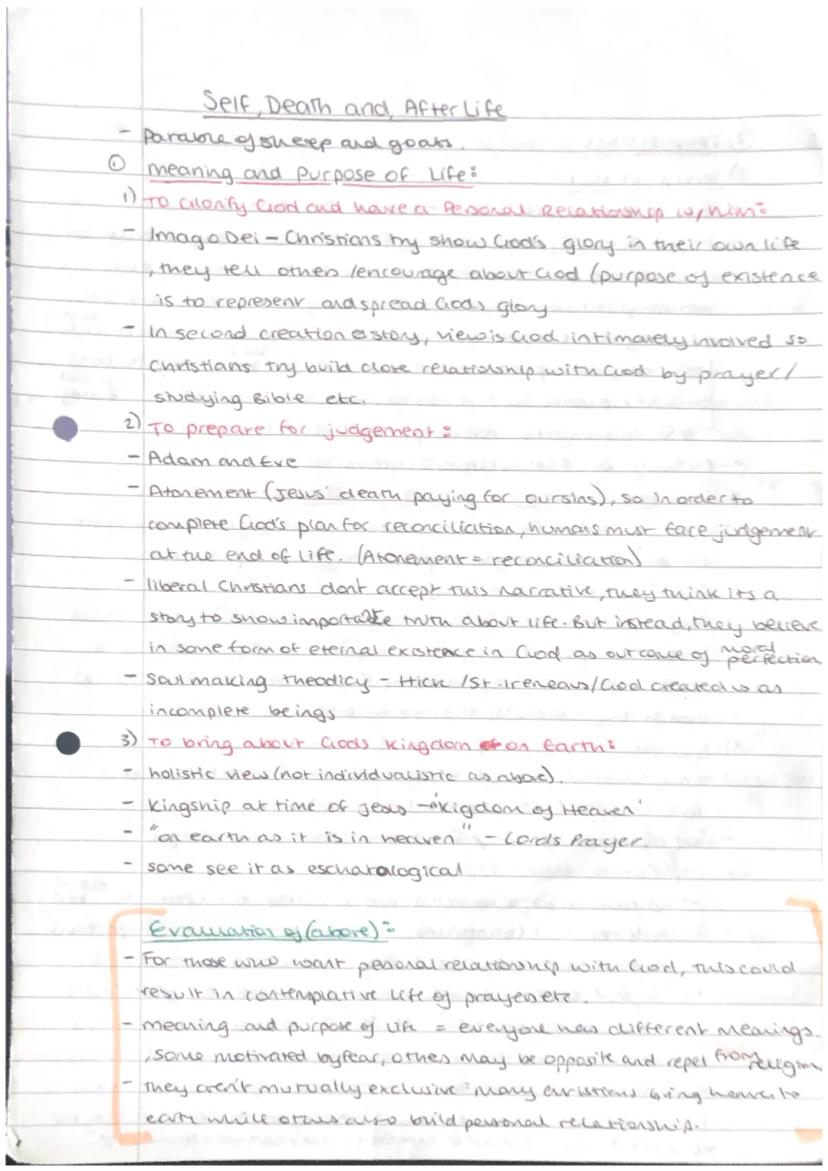 Self, Death and, After Life
- Parable of sheep and goats.
① meaning and Purpose of Life:
1) To Glorify God and have a Personal Relationship w/ him:
- Imago Dei - Christians try show God's glory in their own life
, they tell others /encourage about God (purpose of existence
is to represent and spread Gods glory
- In second creation story, view is God intimately involved so
Christians try build close relationship with God by prayer/
studying Bible etc.
2) To prepare for judgement:
- Adam and Eve
- Atonement (Jesus' death paying for our sins), so in order to
complete God's plan for reconciliation, humans must face judgement
at the end of life. (Atonement = reconciliation)
- liberal Christians dont accept this narrative, they think its a
story to show truth about life. But instead, they believe
in some form of eternal existence in God as outcome of moral perfection
- Soul making theodicy - Hick / St. Ireneaus / God created us as
incomplete beings
3) To bring about Gods Kingdom on Earth:
- holistic view (not individualistic as above).
- Kingship at time of Jesus - 'kigdom of Heaven'
- "on earth as it is in heaven" - Lords Prayer.
- some see it as eschatological
Evaluation of (above):
- For those who want personal relationship with God, this could
result in contemplative life of prayer etc.
- meaning and purpose of life = everyone has different meanings.
, some motivated by fear, others may be opposite and repel from religion
- they aren't mutually exclusive: many christians bring heaven to
earth while others also build personal relationship.